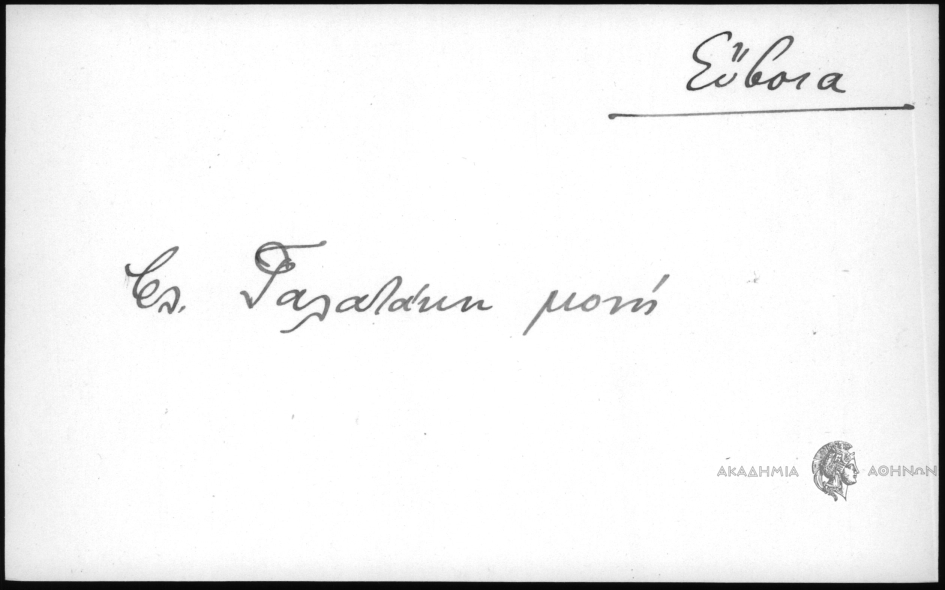 Εὔβοια
βλ. Γαλατάκη μονή
ΑΚΑΔΗΜΙΑ ΑΘΗΝΩΝ